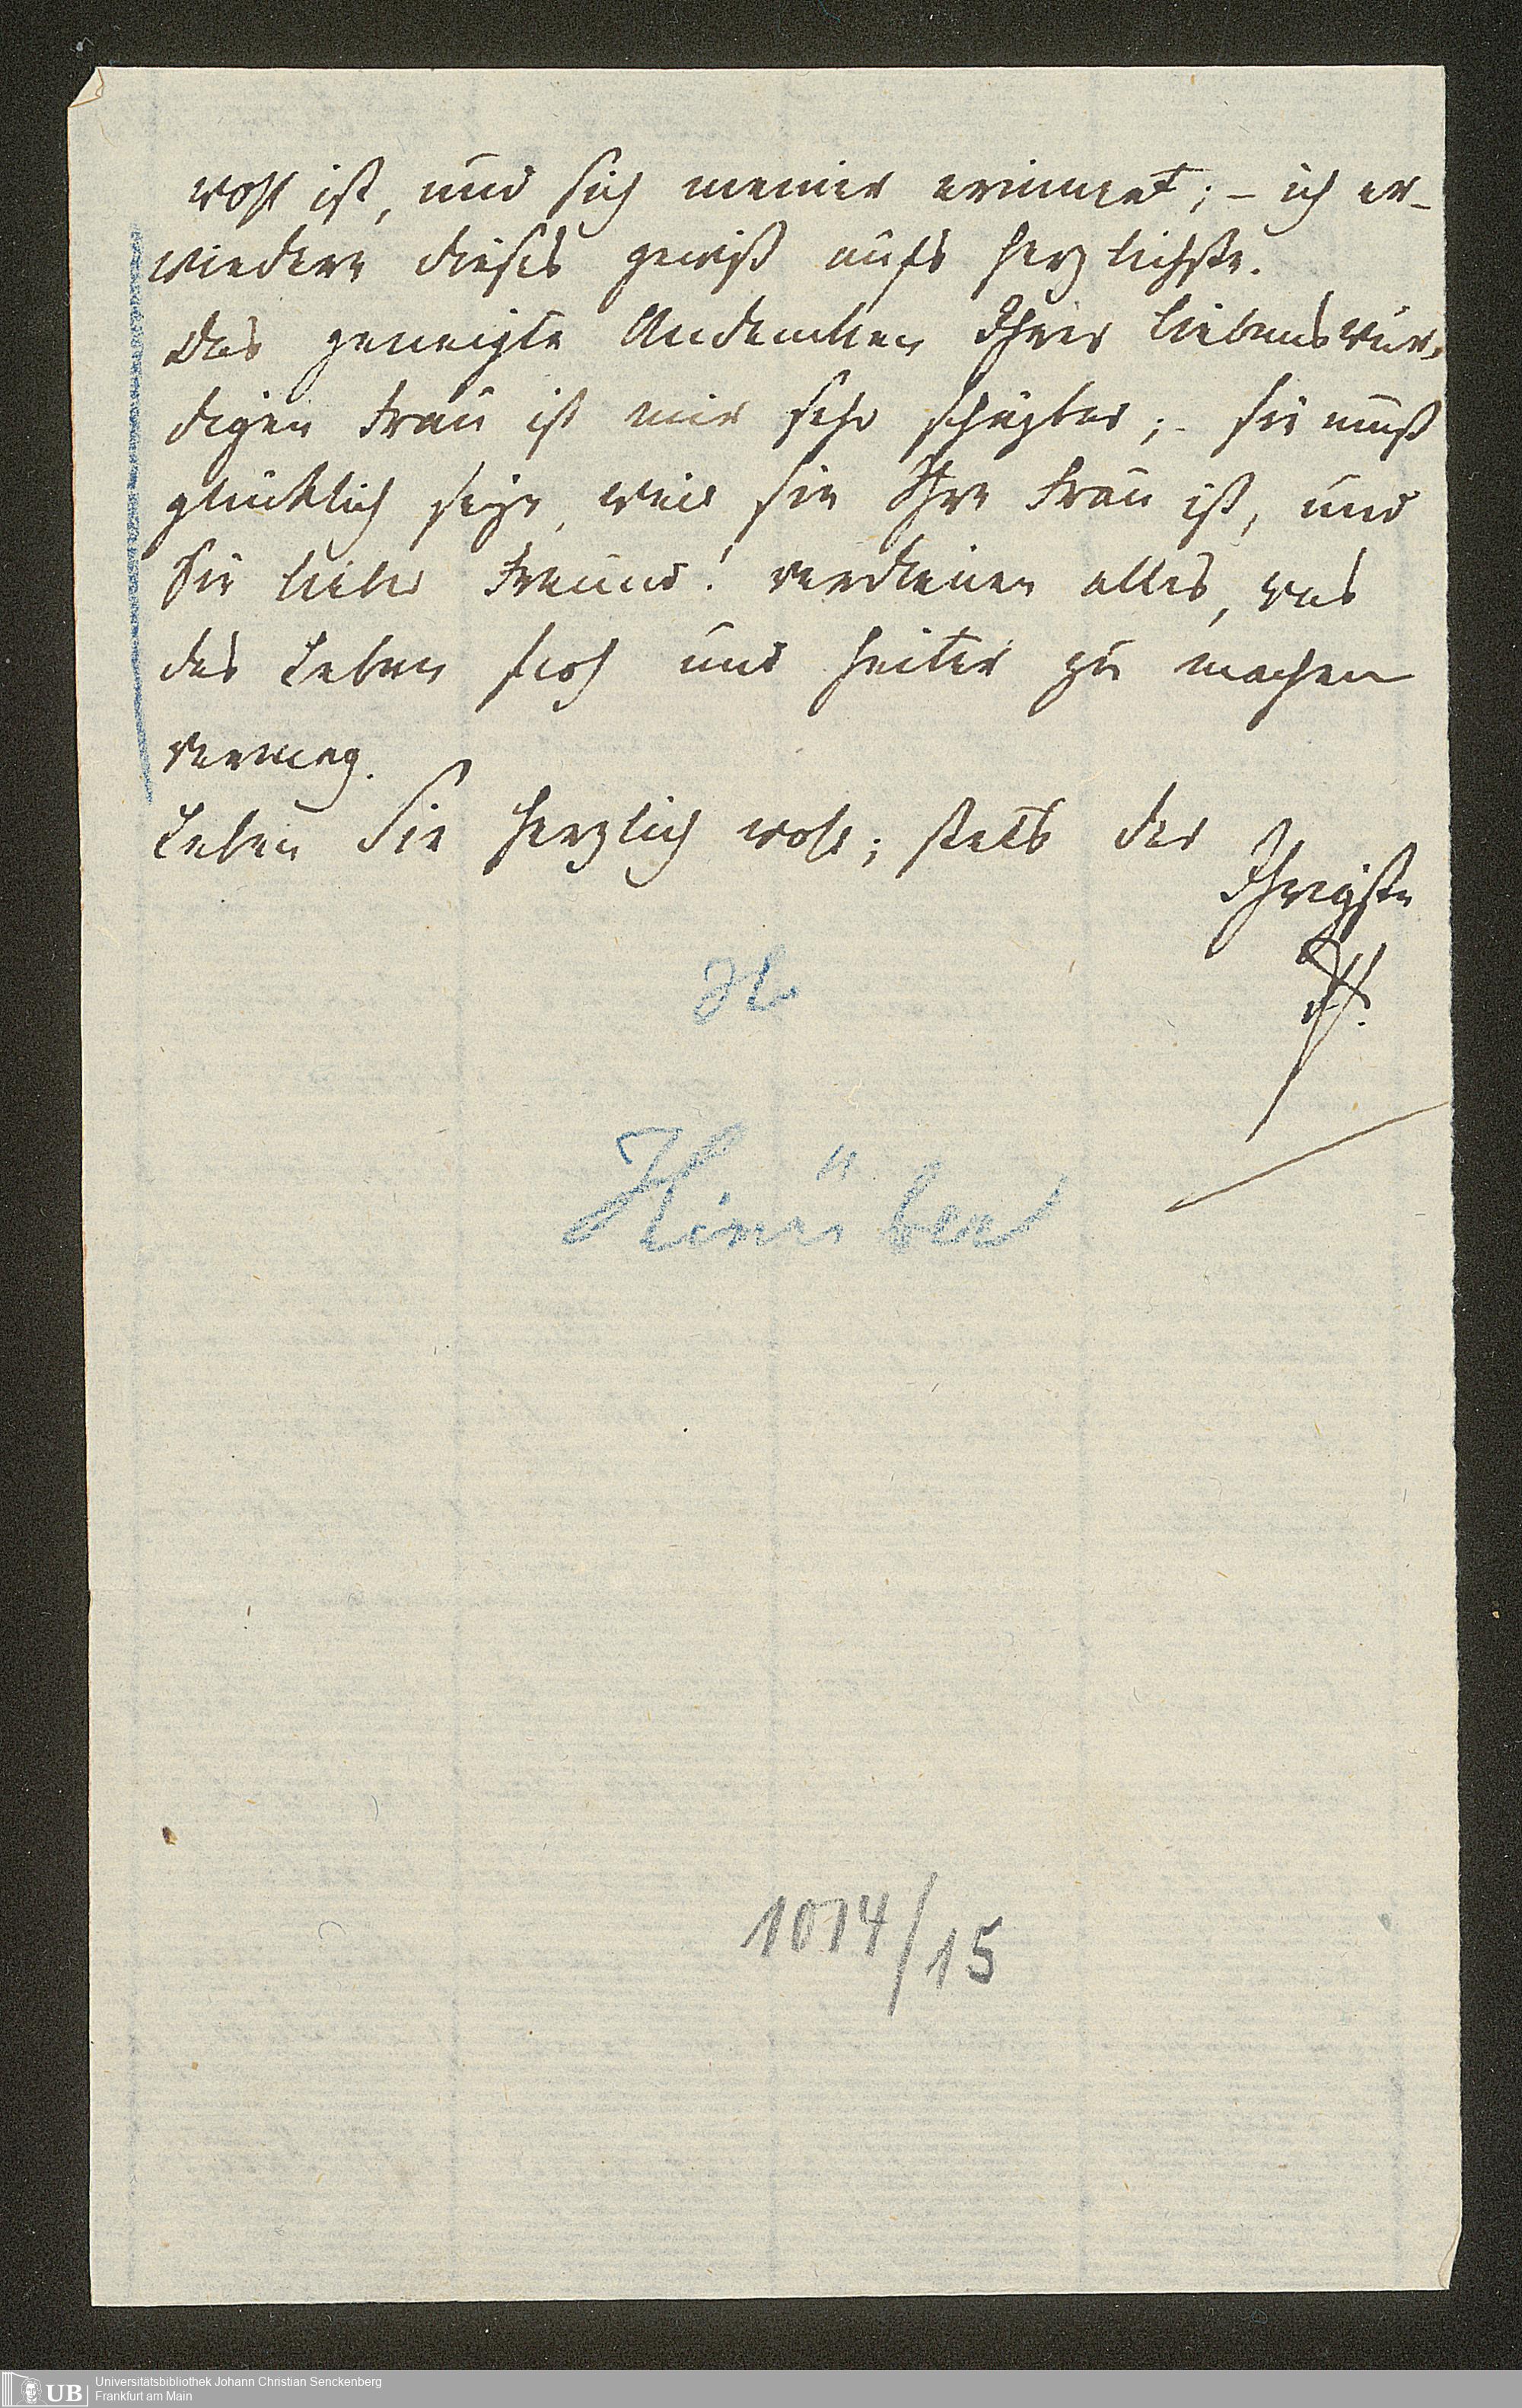 wohl ist, und sich meiner erinnert; – ich er-
wiedere dieses gewiß aufs herzlichste.
Das geneigte Andenken Ihrer liebenswür-
digen Frau ist mir sehr schäzbar; – sie muß
glücklich seyn, weil sie Ihre Frau ist, und
Sie lieber Freund! verdienen alles, was
das Leben froh und heiter zu machen
vermag.
Leben Sie herzlich wohl; stets der
Ihrigste
H.
Hinüber
1014/15
UB
Universitätsbibliothek Johann Christian Senckenberg
Frankfurt am Main